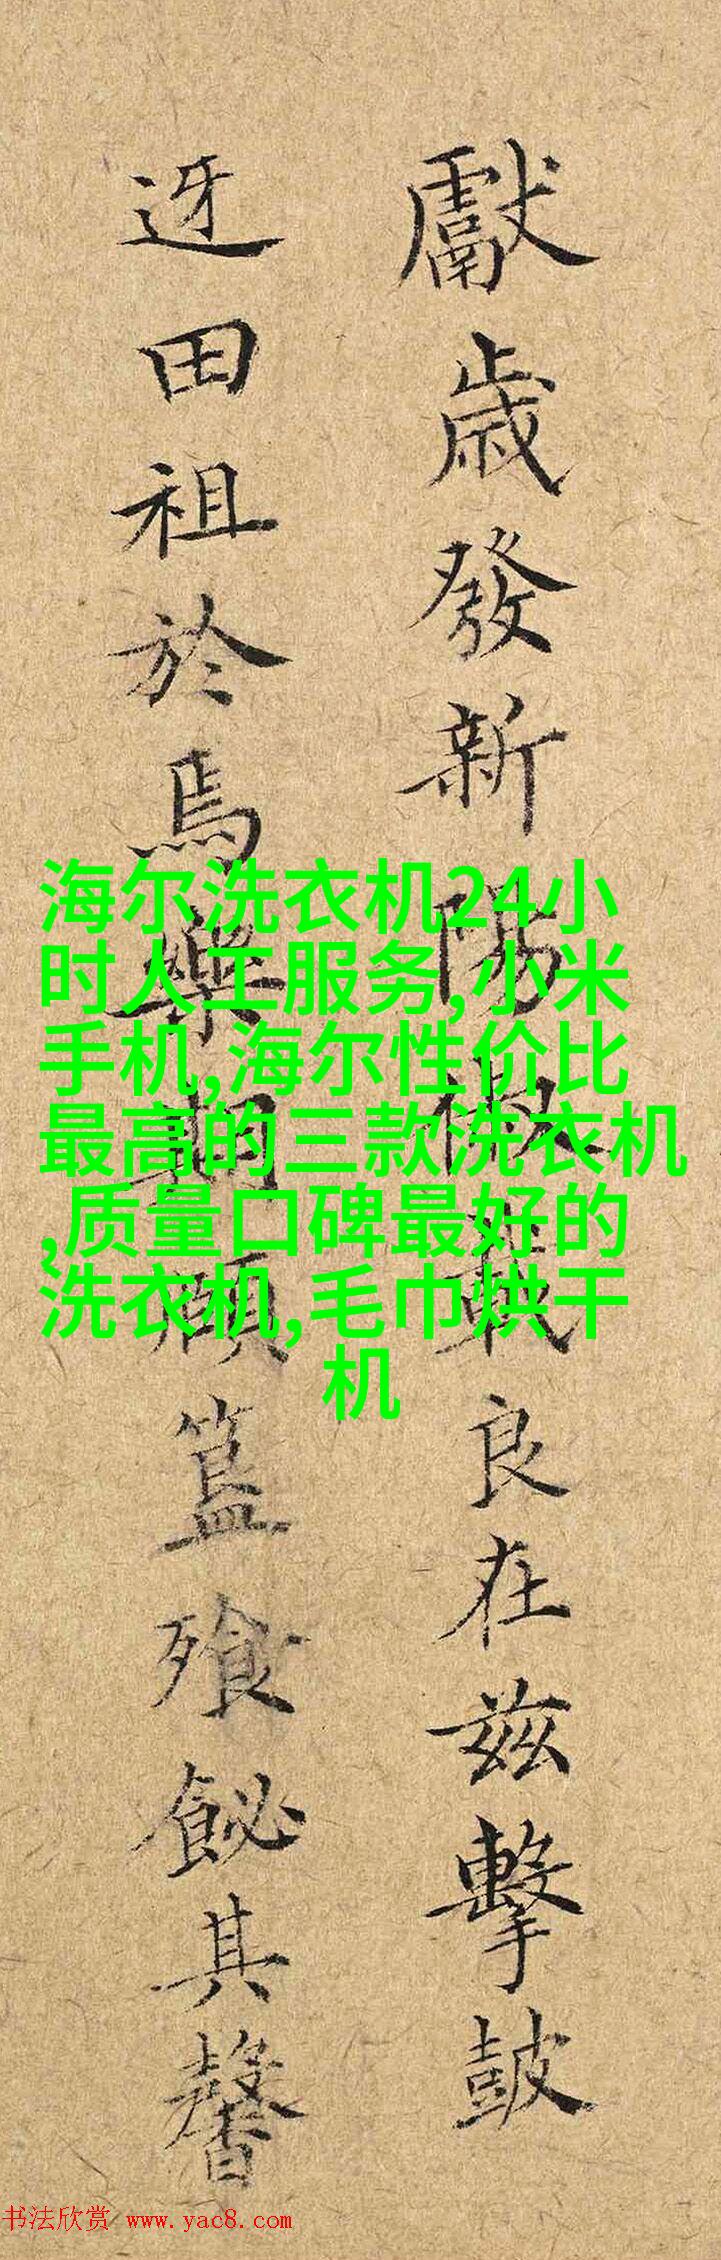 獻歲發新陽椒載良在兹擊鼓
迓田祖於焉樂朝簋飱飶其馨
海尔洗衣机24小
时人工服务,小米
手机,海尔性价比
最高的三款洗衣机
,质量口碑最好的
洗衣机,毛巾烘干
机
书法欣赏 www.yac8.com